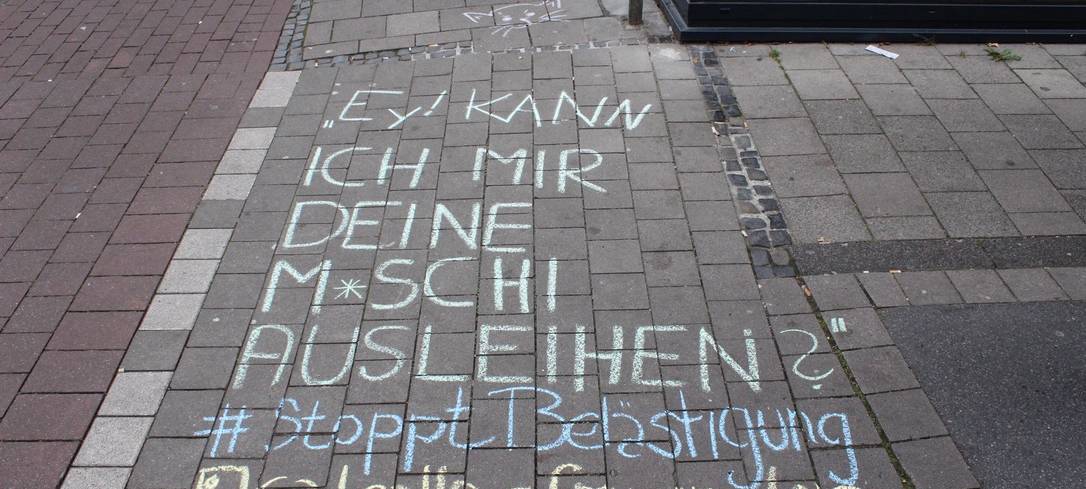 „Ey! KANN
ICH MIR
DEINE
M*SCHI
AUSLEIHEN?"
#StopptBelästigung